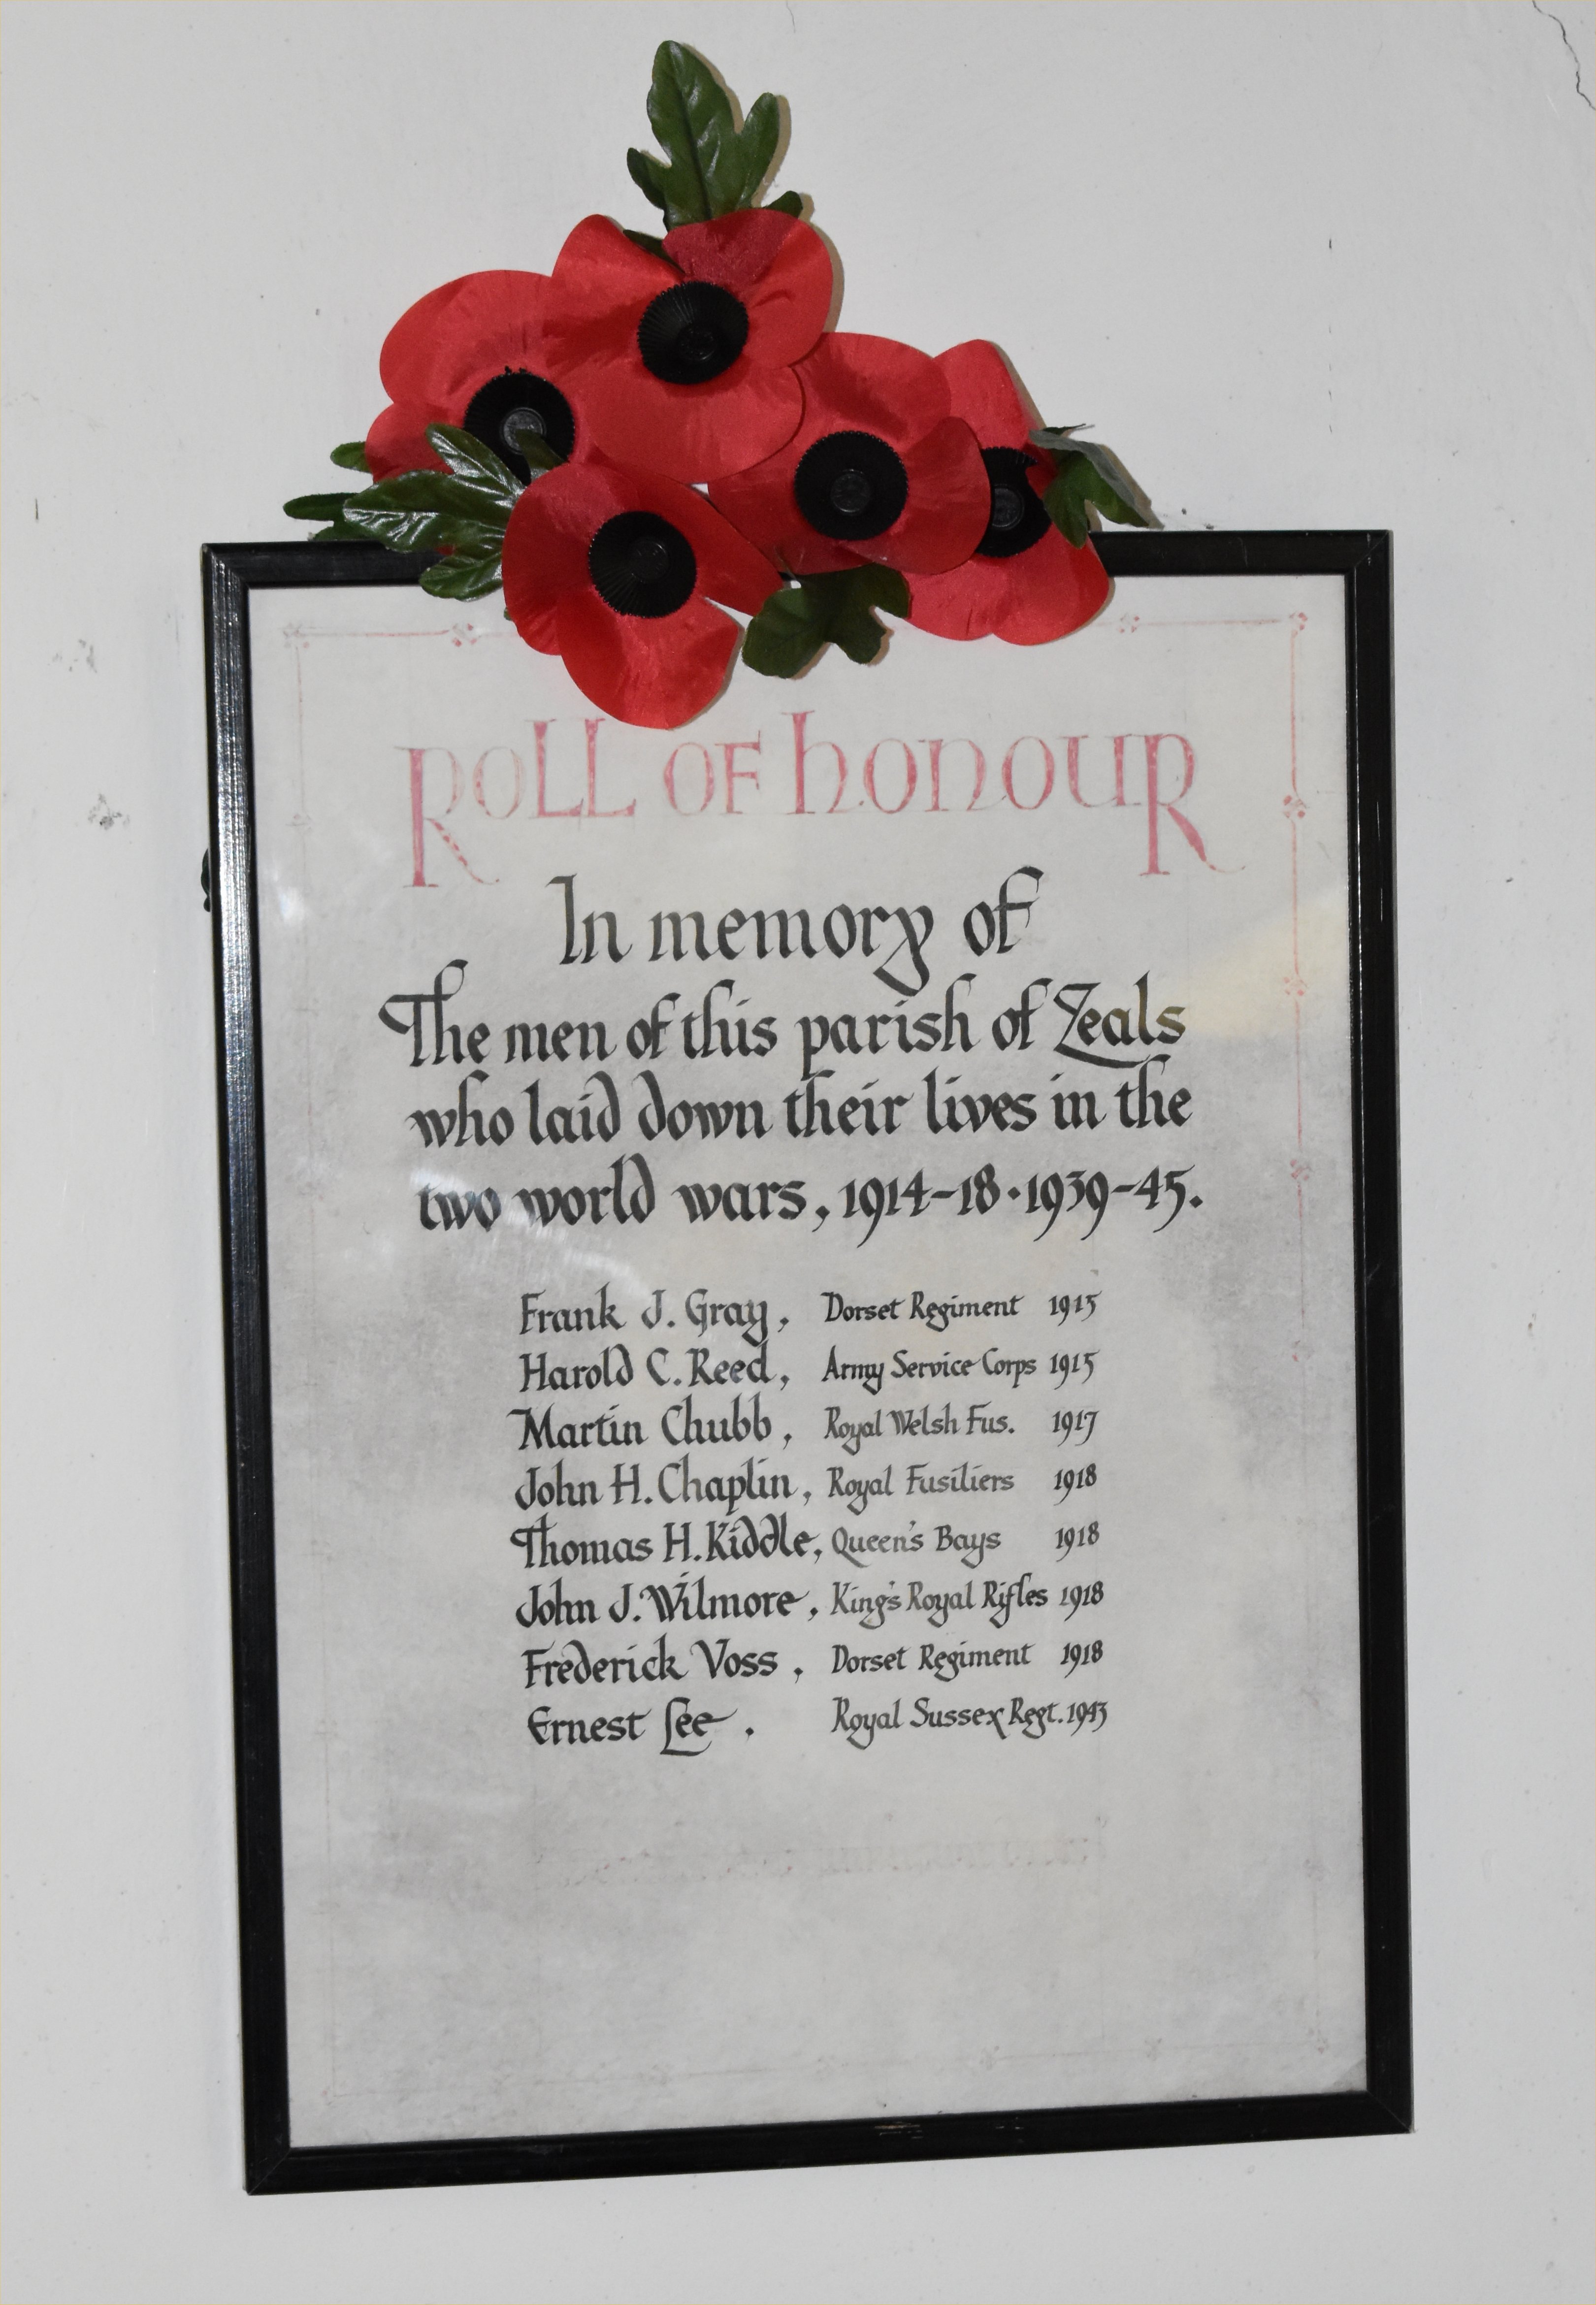 Roll of honour
In memory of
The men of this parish of Zeals
who laid down their lives in the
two world wars, 1914-18·1939-45.
Frank J. Gray, Dorset Regiment 1915
Harold C. Reed, Army Service Corps 1915
Martin Chubb, Royal Welsh Fus. 1917
John H. Chaplin, Royal Fusiliers 1918
Thomas H. Kiddle, Queen's Bays 1918
John J. Wilmore, King's Royal Rifles 1918
Frederick Voss, Dorset Regiment 1918
Ernest Lee. Royal Sussex Regt. 1943